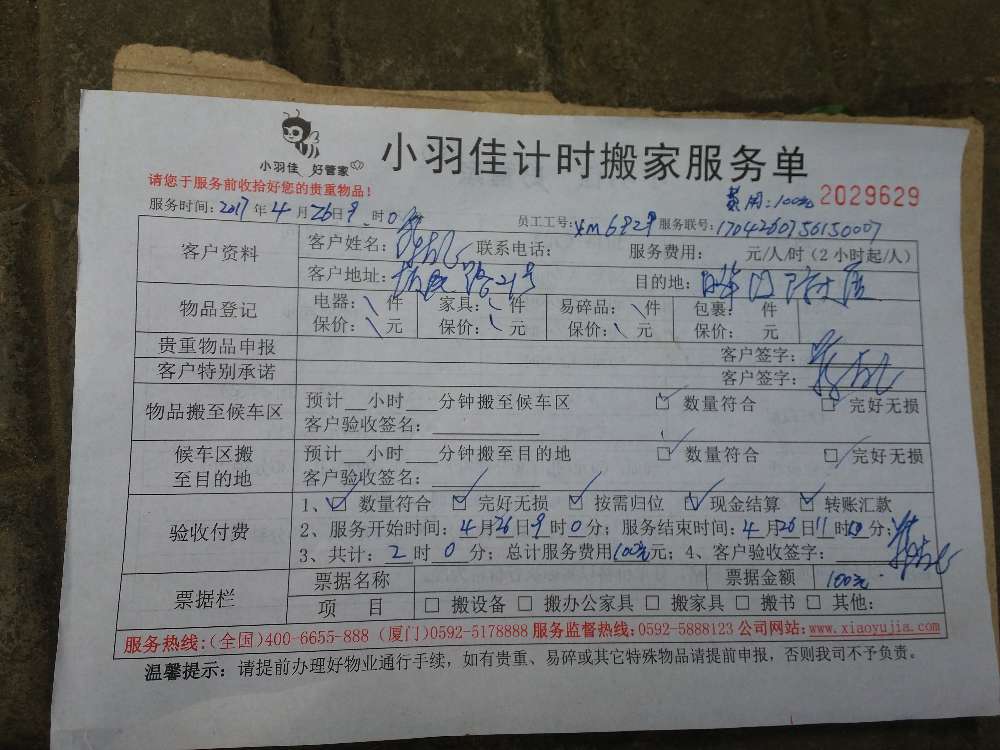 小羽佳 好管家
小羽佳计时搬家服务单
请您于服务前收拾好您的贵重物品！
费用：100元 2029629
服务时间：2017年4月26日9时0分 员工工号：xm6829 服务联号：1704260756150007
客户资料 客户姓名： 联系电话： 服务费用： 元/人/时（2小时起/人）
客户地址： 路21号 目的地：
物品登记 电器：\件 家具：\件 易碎品：\件 包裹： 件
保价：\元 保价：\元 保价：\元 保价： 元
贵重物品申报 客户签字：
客户特别承诺 客户签字：
物品搬至候车区 预计__小时___分钟搬至候车区 ☑ 数量符合 ☑ 完好无损
客户验收签名：__________
候车区搬至目的地 预计__小时___分钟搬至目的地 ☑ 数量符合 ☑ 完好无损
客户验收签名：__________
验收付费 1、☑ 数量符合 ☑ 完好无损 ☑ 按需归位 ☑ 现金结算 ☑ 转账汇款
2、服务开始时间：4月26日9时0分；服务结束时间：4月26日11时0分；
3、共计：2时0分；总计服务费用100元元；4、客户验收签字：
票据栏 票据名称 票据金额 100元
项 目 □ 搬设备 □ 搬办公家具 □ 搬家具 □ 搬书 □ 其他：
服务热线：(全国)400-6655-888 (厦门)0592-5178888 服务监督热线：0592-5888123 公司网站：www.xiaoyujia.com
温馨提示：请提前办理好物业通行手续，如有贵重、易碎或其它特殊物品请提前申报，否则我司不予负责。